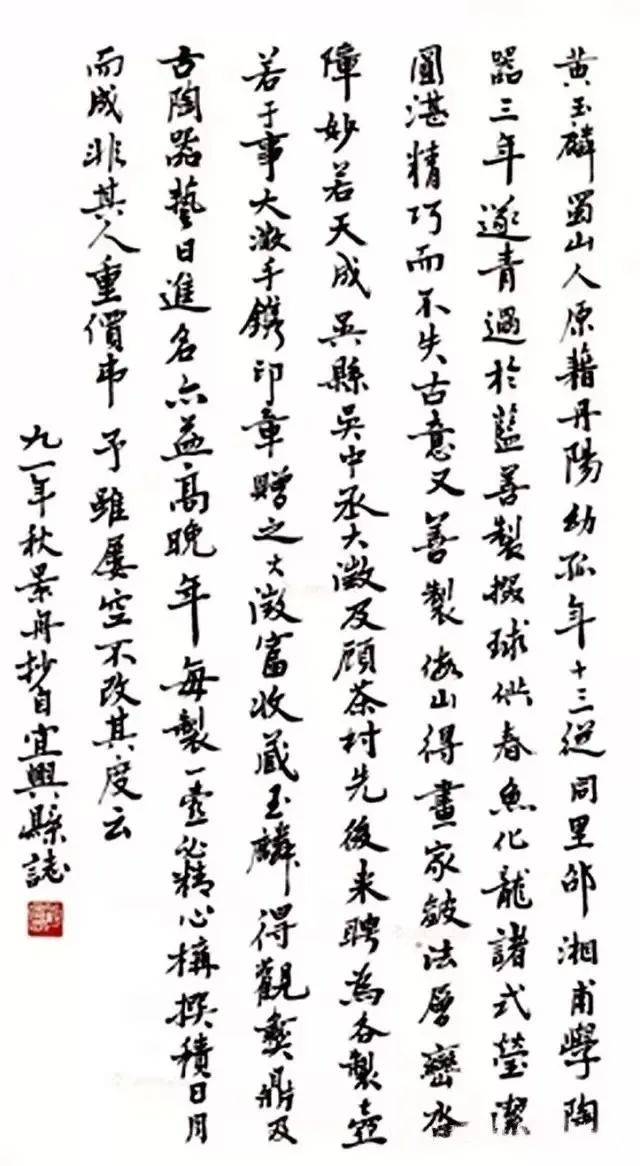 黄玉麟蜀山人原籍丹陽幼孤年十三從同里邵湘甫學陶
器三年遂青過於藍善製掇球供春魚化龍諸式瑩潔
圓湛精巧而不失古意又善製假山得畫家皴法層巒沓
障妙若天成吳縣吳中丞大澂及顧茶村先後来聘為各製壺
若于事大澂手鐫印章贈之大澂富收藏玉麟得觀彝鼎及
古陶器藝日進名亦益高晚年每製一壺必精心構撰積日月
而成非其人重價弗予雖屢空不改其度云
九一年秋景舟抄自宜興縣誌